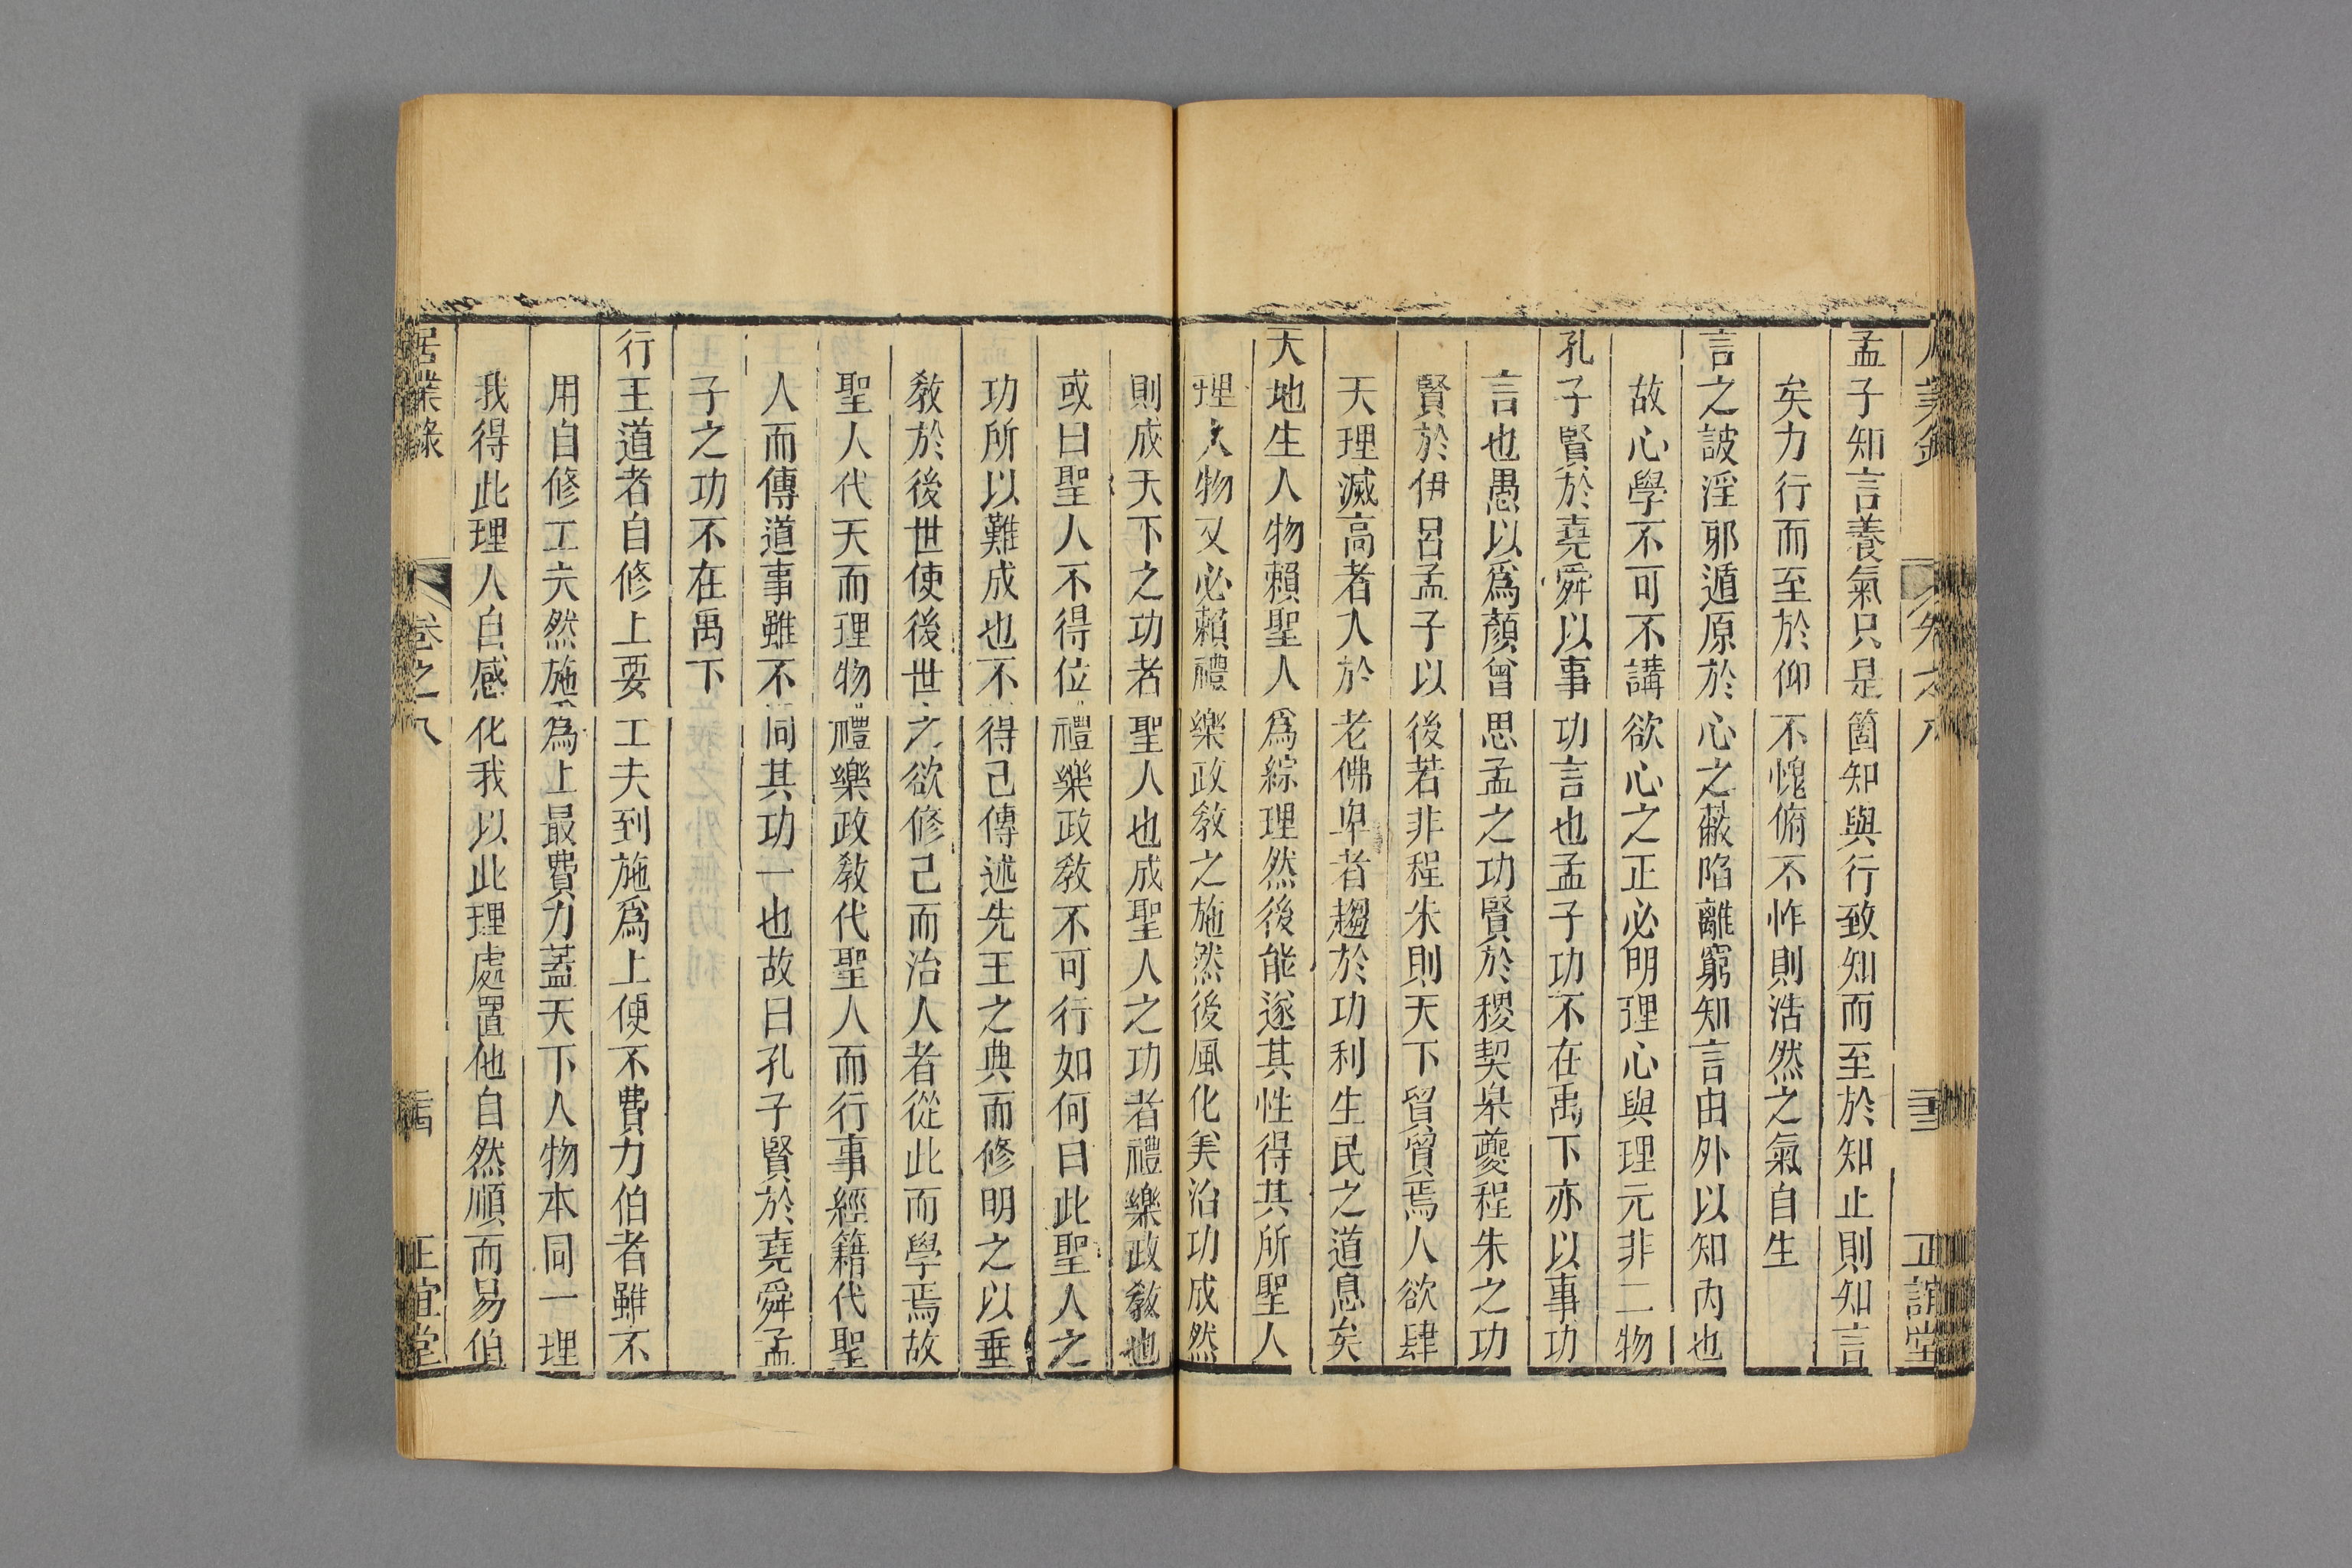 孟子知言養氣只是箇知與行致知而至於知止則知言
矣力行而至於仰不愧俯不怍則浩然之氣自生
言之詖淫邪遁原於心之蔽陷離窮知言由外以知內也
故心學不可不講欲心之正必明理心與理元非二物
孔子賢於堯舜以事功言也孟子功不在禹下亦以事功
言也愚以爲顏曾思孟之功賢於稷契皋夔程朱之功
賢於伊呂孟子以後若非程朱則天下貿貿焉人欲肆
天理滅高者入於老佛卑者趨於功利生民之道息矣
天地生人物賴聖人爲綜理然後能遂其性得其所聖人
理人物又必賴禮樂政教之施然後風化美治功成然
則成天下之功者聖人也成聖人之功者禮樂政教也
或曰聖人不得位禮樂政教不可行如何曰此聖人之
功所以難成也不得已傳述先王之典而修明之以垂
教於後世使後世之欲修己而治人者從此而學焉故
聖人代天而理物禮樂政教代聖人而行事經籍代聖
人而傳道事雖不同其功一也故曰孔子賢於堯舜孟
子之功不在禹下
行王道者自修上要工夫到施爲上便不費力伯者雖不
用自修工夫然施爲上最費力蓋天下人物本同一理
我得此理人自感化我以此理處置他自然順而易伯
居業錄 卷之八 正誼堂